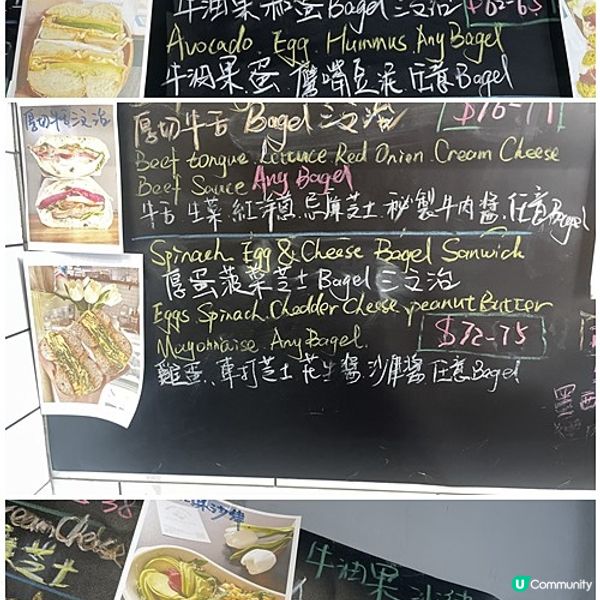 牛油果和蛋Bagel三文治 $62-65
Avocado. Egg. Hummus Any Bagel
牛油果.蛋.鷹嘴豆泥.任意Bagel
厚切牛舌三文治
厚切牛舌 Bagel三文治
Beef tongue. Lettuce Red Onion. Cream Cheese
Beef Sauce Any Bagel
牛舌.生菜.紅洋蔥.忌廉芝士.秘製牛肉醬.任意Bagel
Spinach Egg & Cheese Bagel Sanwich
厚蛋菠菜芝士Bagel三文治
Eggs Spinach. Chedder Cheese. peanut Butter
Mayonnaise Any Bagel. $72-75
雞蛋.車打芝士.花生醬.沙律醬.任意Bagel
38
Cream Cheese
芝士
沙律
牛油果
U Community